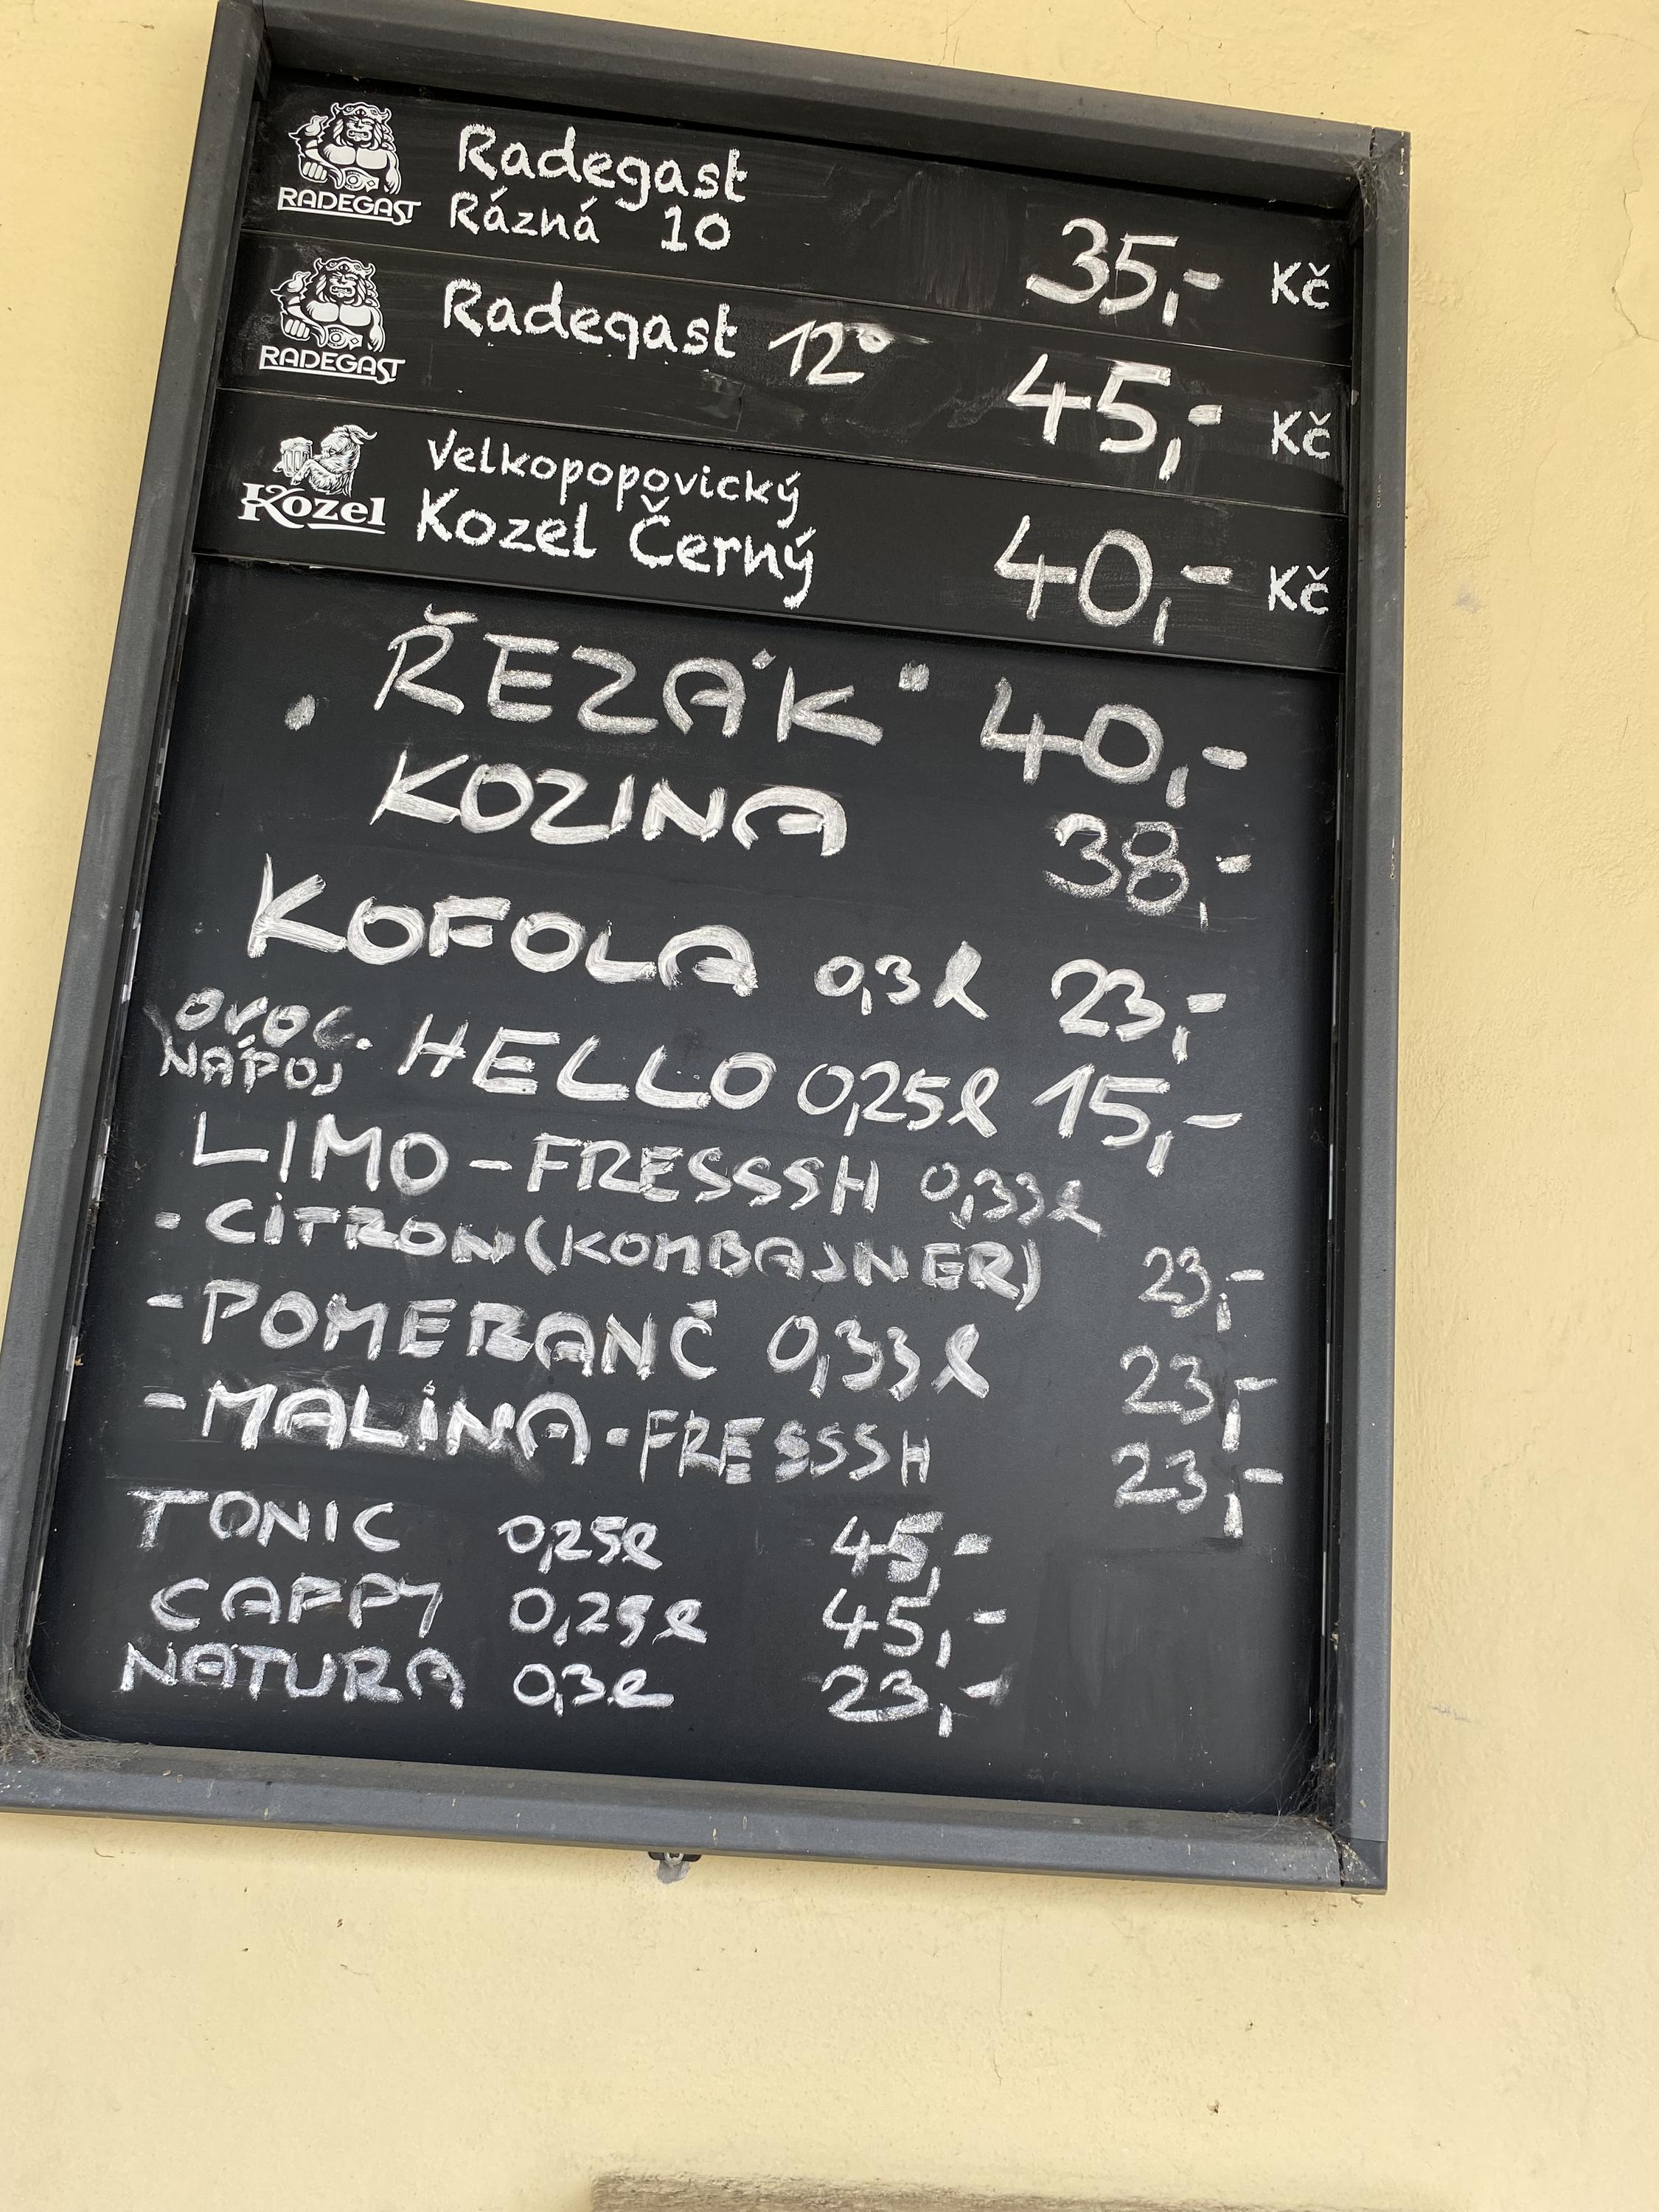 RADEGAST Radegast
Rázná 10 35,- Kč
RADEGAST Radegast 12° 45,- Kč
Kozel Velkopopovický
Kozel Černý 40,- Kč
„ŘEZÁK" 40,-
KOZINA 38,-
KOFOLA 0,3l 23,-
OVOC.
NÁPOJ HELLO 0,25l 15,-
LIMO - FRESSSH 0,33l
- CITRON (KOMBAJNER) 23,-
- POMERANČ 0,33l 23,-
- MALINA - FRESSSH 23,-
TONIC 0,25l 45,-
CAPPY 0,25l 45,-
NATURA 0,3l 23,-